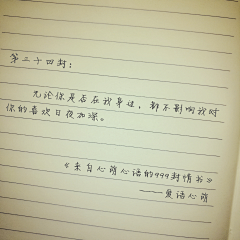 第二十四封：
无论你是否在我身边，都不影响我对
你的喜欢日夜加深。
《来自心萌心语的999封情书》
——爱语心萌